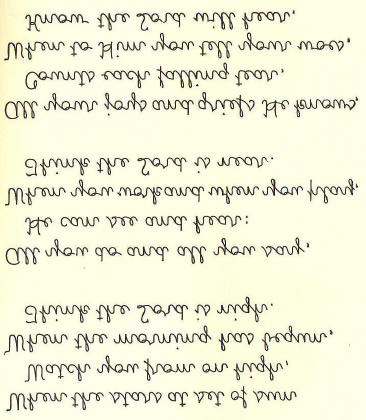 When the stars to set of sun
Watch you from on high,
When the morning has begun,
Think the Lord is nigh.
All you do and all you say,
He can see and hear:
When you work and when you play,
Think the Lord is near.
All your joys and griefs He knows,
Counts each falling tear,
When to Him you tell your woes,
Know the Lord will hear.